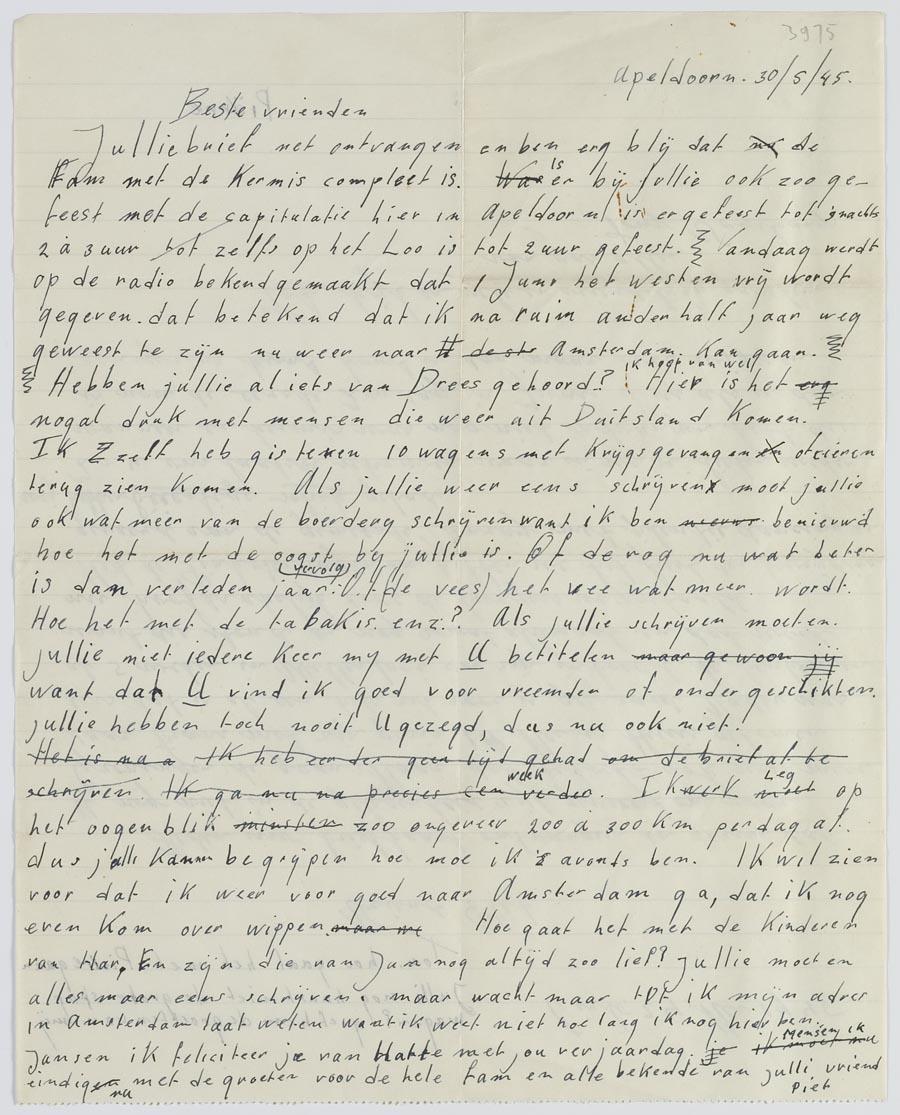 3975
Apeldoorn. 30/5/45.
Beste vrienden
Jullie brief net ontvangen en ben erg blij dat nu de
Fam met de Kermis compleet is. Was is er bij jullie ook zoo ge-
feest met de capitulatie hier in Apeldoorn is er gefeest tot 's nachts
2 à 3 uur tot zelfs op het Loo is tot 2 uur gefeest. Vandaag werdt
op de radio bekendgemaakt dat 1 Juni het westen vrij wordt
gegeven. dat betekend dat ik na ruim anderhalf jaar weg
geweest te zijn nu weer naar de Amsterdam. Kan gaan.
ik hoop van wel
Hebben jullie al iets van Drees gehoord? Hier is het erg
nogal druk met mensen die weer uit Duitsland Komen.
Ik Zzelf heb gisteren 10 wagens met Krijgsgevangen officieren
terug zien Komen. Als jullie weer eens schrijven moet jullie
ook wat meer van de boerdery schrijven want ik ben nieuws benieuwd
hoe het met de oogst by jullie is. Of de rog nu wat beter
(vervolg)
is dan verleden jaar. Of (de vees) het vee wat meer wordt.
Hoe het met de tabak is. enz.? Als jullie schrijven moeten.
jullie niet iedere Keer my met U betitelen maar gewoon jij
want dat U vind ik goed voor vreemden of ondergeschikten.
jullie hebben toch nooit U gezegd, dus nu ook niet.
Het is na a IK heb eerder geen tijd gehad om de brief af te
week
schrijven. Ik ga nu na precies een verder. IK werk moet Leg op
het oogenblik minsten zoo ongeveer 200 à 300 Km per dag af.
dus julli Kannn begrijpen hoe moe ik 's avonds ben. IK wil zien
voor dat ik weer voor goed naar Amsterdam ga, dat ik nog
even Kom over wippen. maar me Hoe gaat het met de Kinderen
van Har. En zijn die van Jan nog altijd zoo lief? Jullie moeten
alles maar eens schrijven. maar wacht maar tot ik mijn adres
in Amsterdam laat weten want ik weet niet hoe lang ik nog hier ben.
Jansen ik feliciteer je van harte met jou verjaardag. je ik moet nu Mensen ik
eindigen nu met de groeten voor de hele fam en alle bekende van julli vriend
Piet